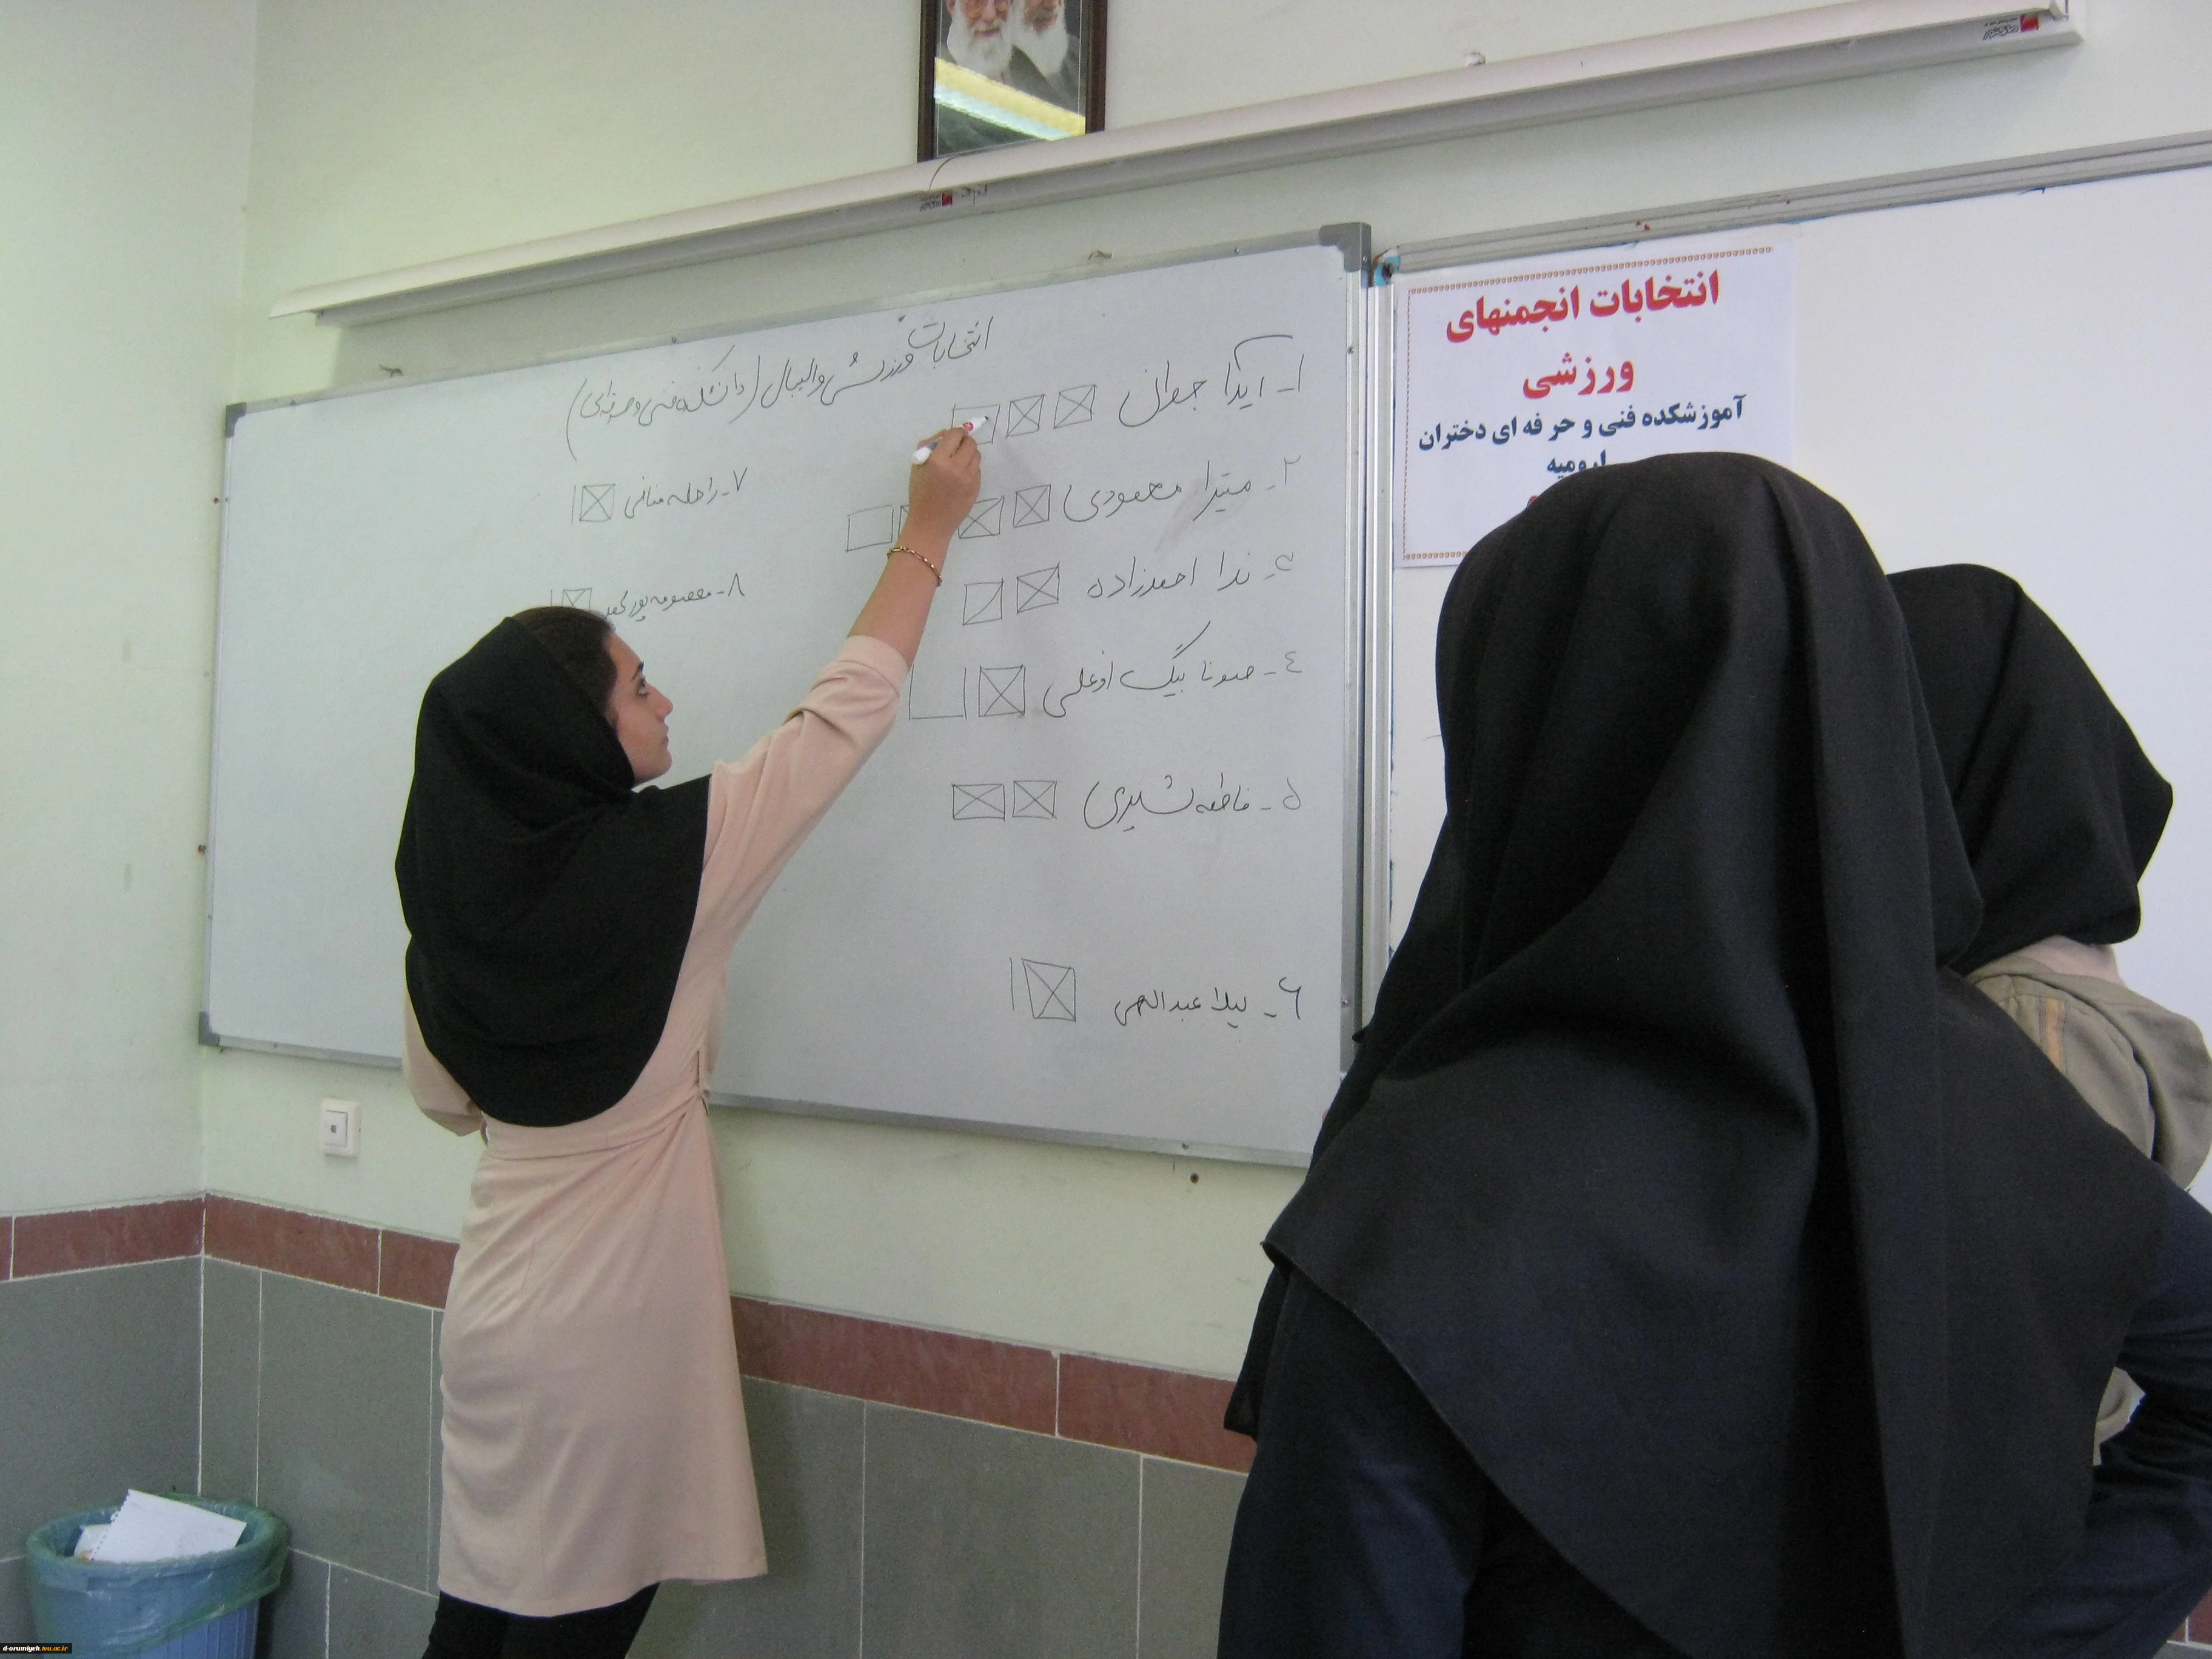 انتخابات ورزشی والیبال (دانشکده فنی و حرفه‌ای)
۱- آیدا جوان
۲- میترا محمودی
۳- ندا احمدزاده
٤- صونا بیگ اوغلی
۵- فاطمه شیری
۶- لیلا عبدالهی
۷- راحله منافی
۸- معصومه پور
انتخابات انجمنهای
ورزشی
آموزشکده فنی و حر فه ای دختران
ارومیه
d-orumiyeh.tvu.ac.ir